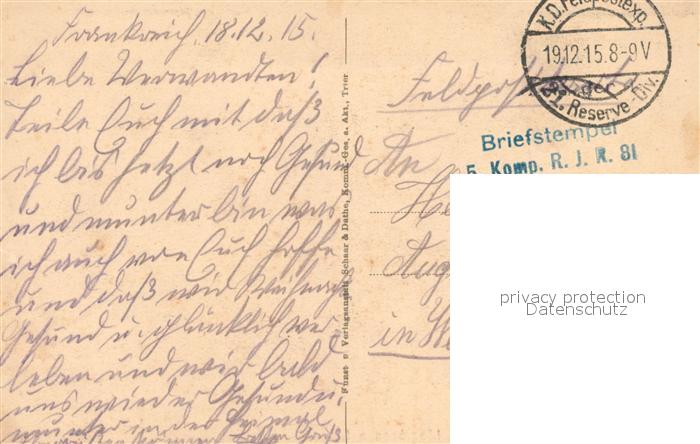 Frankreich, 18.12.15.
Liebe Verwandten!
Teile Euch mit daß
ich bis jetzt noch Gesund
und munter bin was
ich auch von Euch hoffe
und daß wir
Gesund u. glücklich ver
leben und wir bald
uns wieder Gesund u
munter in der Heimat
Kunst u Verlagsanstalt Schaar & Dathe, Komm.-Ges. a. Akt., Trier
K.D. Feldpostexp.
19.12.15.8-9V
der
21. Reserve-Div.
Feldpost
Briefstempel
5. Komp. R. J. R. 81
An
He
Aug
in We
privacy protection
Datenschutz